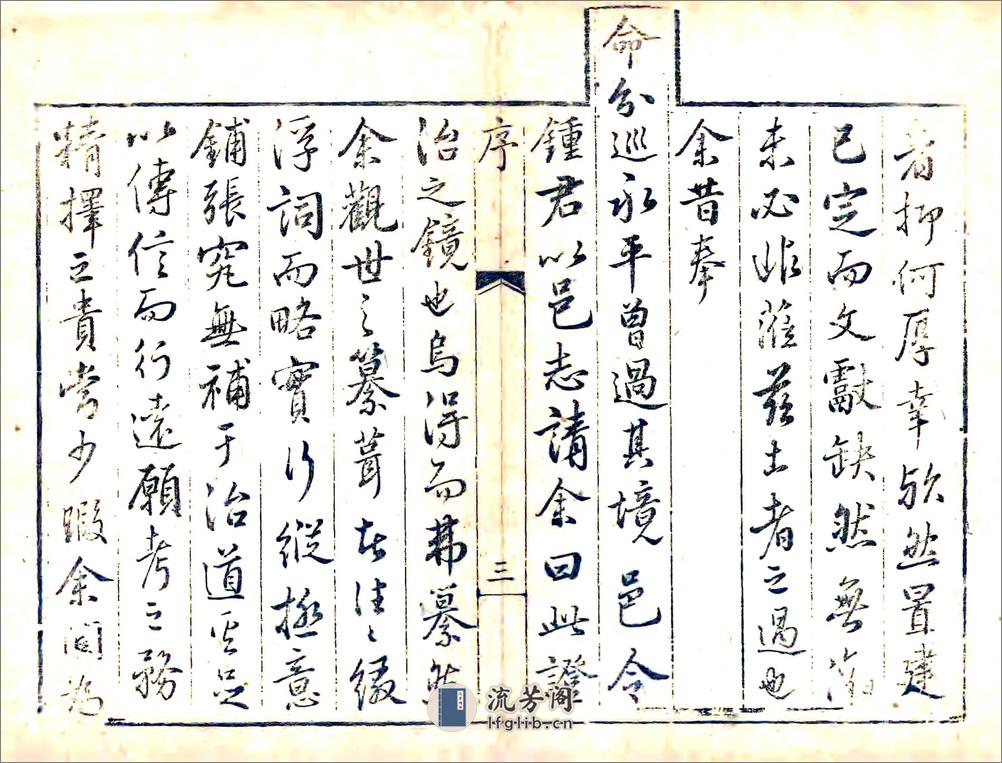 者抑何厚幸欤然置建
已定而文獻缺然無
未必非蒞茲土者之過也
余昔奉
命分巡永平曾過其境邑令
鍾君以邑志請余曰此證
序
三
治之鏡也烏得而弗纂然
余觀世之纂葺者往往綴
浮詞而略實行縱極意
鋪張究無補于治道其足
以傳信而行遠願考之務
精擇之貴當少暇余間為
流芳阁
lfglib.cn